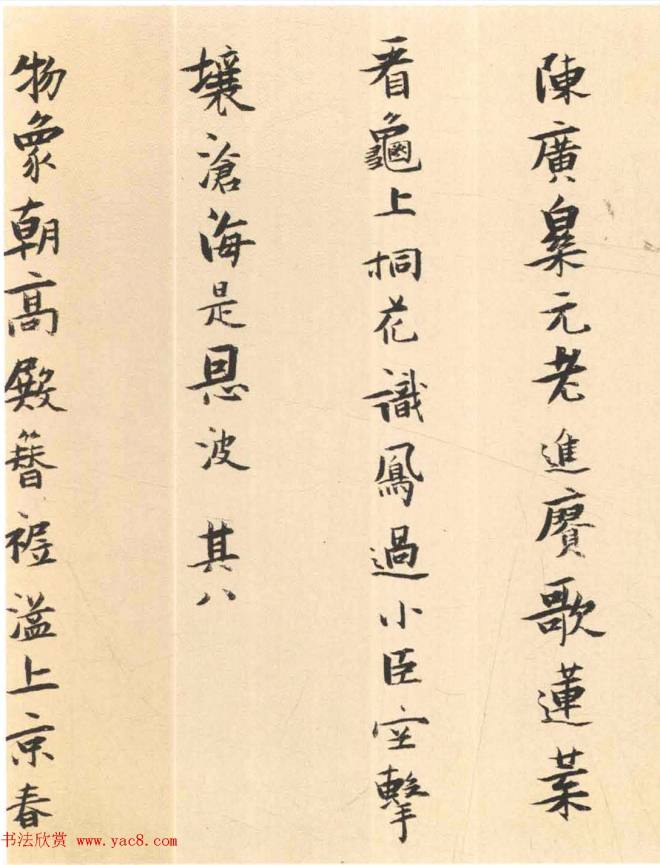 陳廣皋元老進賡歌蓮葉
看龜上桐花識鳳過小臣空擊
壤滄海是恩波 其八
物象朝高殿簪裾溢上京春
书法欣赏 www.yac8.com